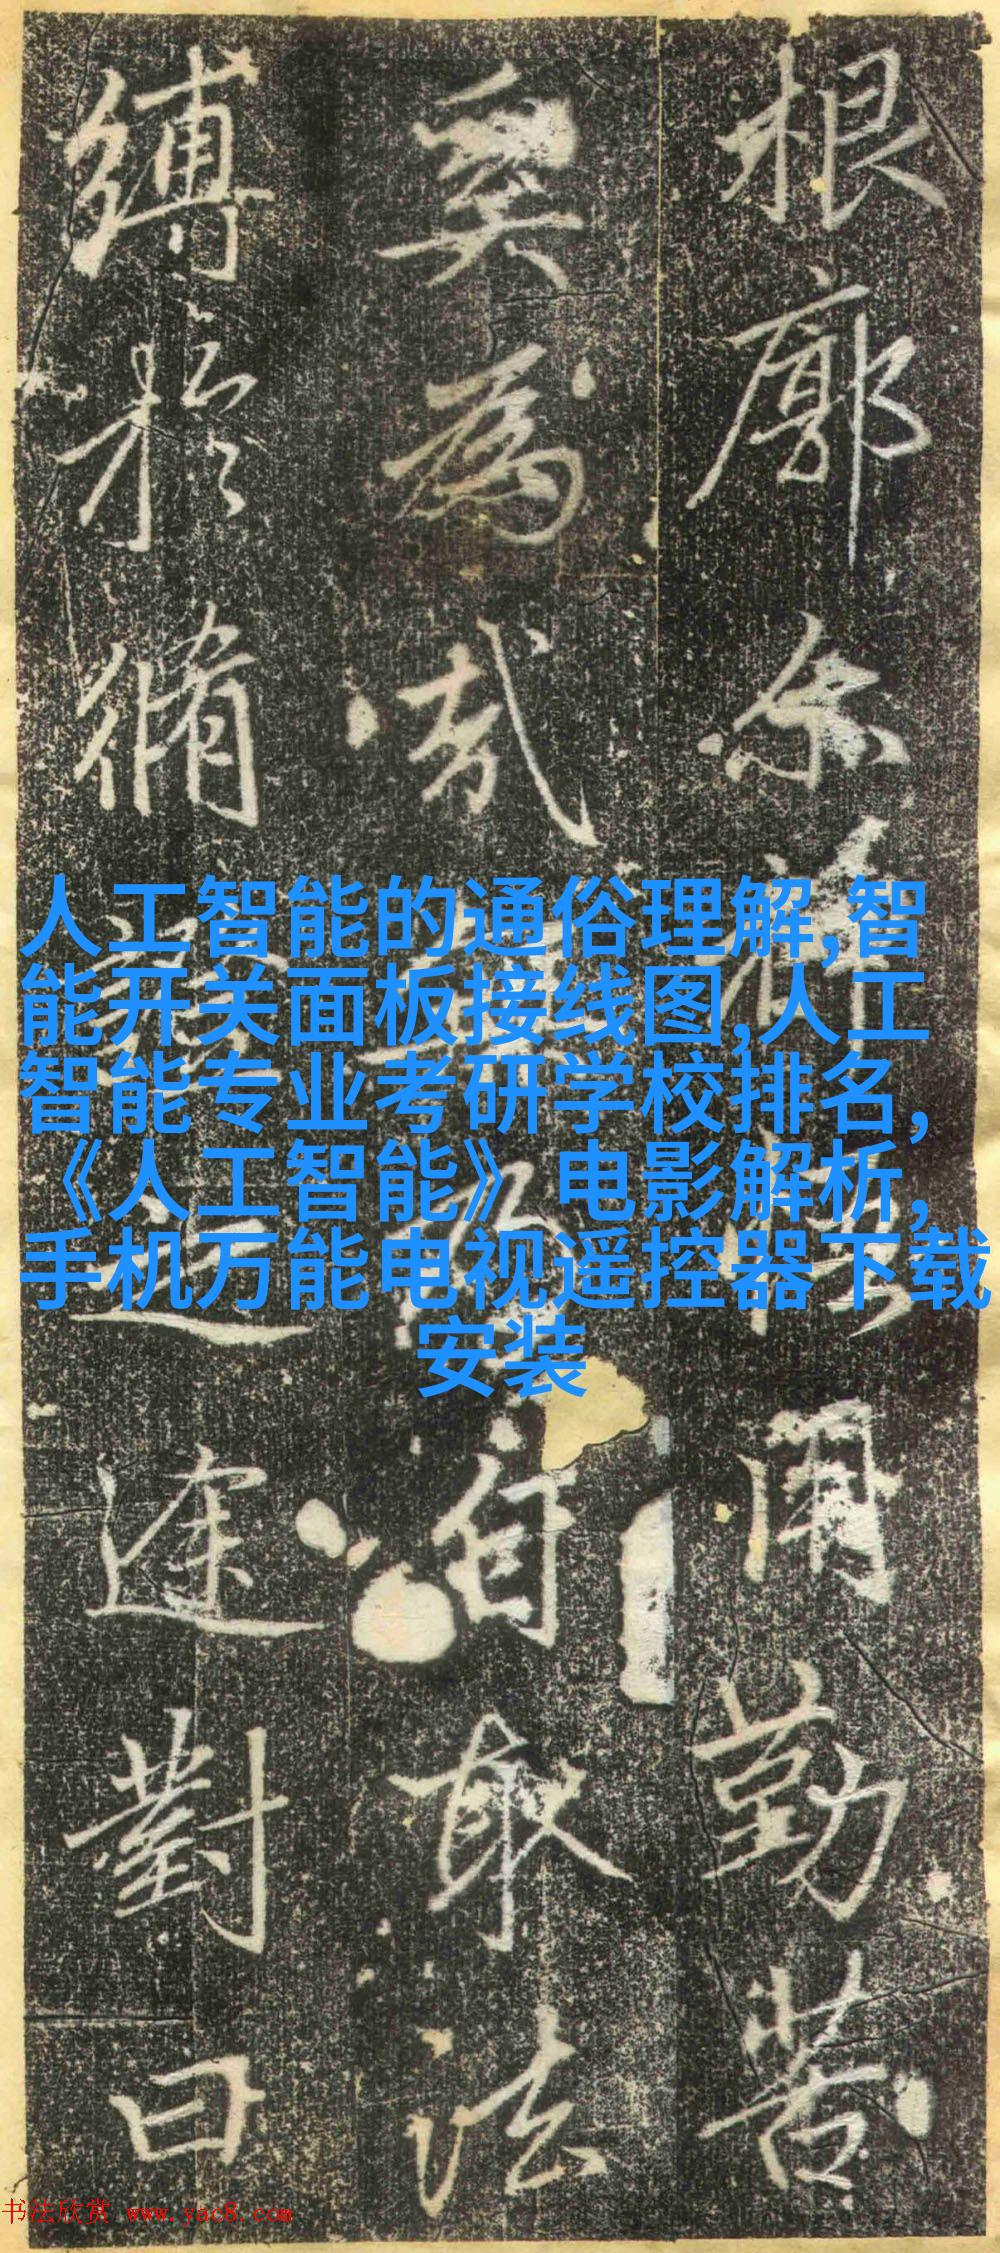 根廓尔
用勤苦
奚為
自取法
縛於脩
途對曰
人工智能的通俗理解,智
能开关面板接线图,人工
智能专业考研学校排名,
《人工智能》电影解析,
手机万能电视遥控器下载
安装
书法欣赏 www.yac8.com